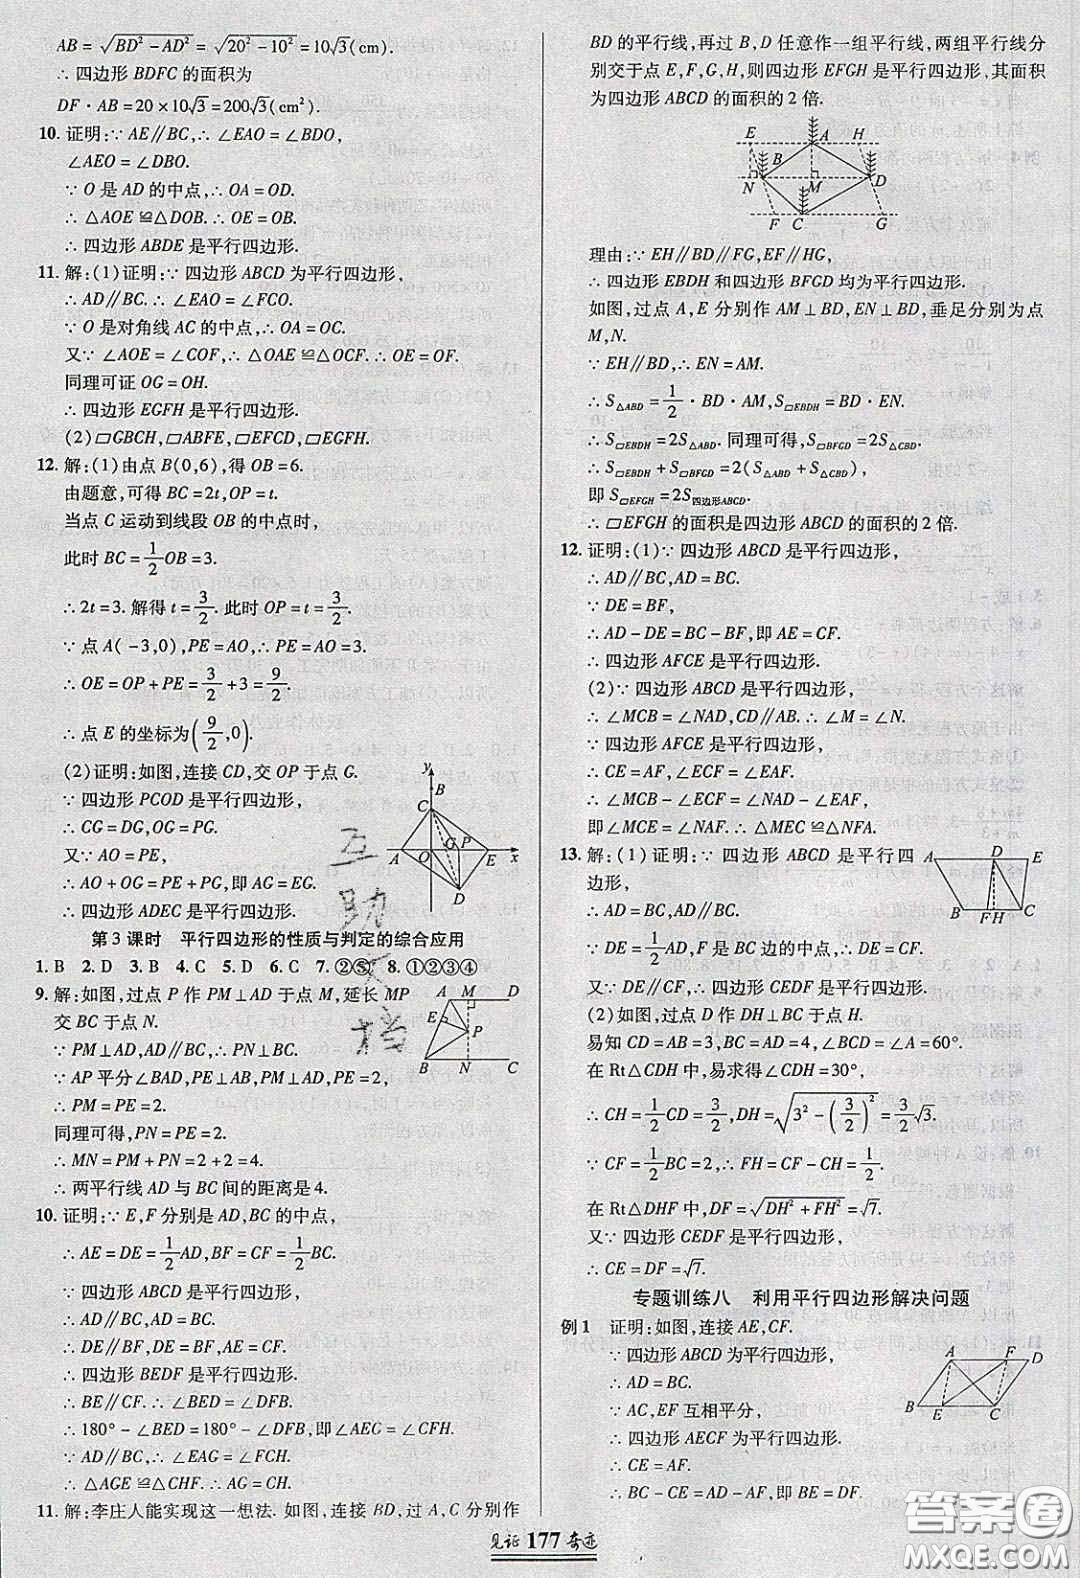 AB=√(BD²-AD²)=√(20²-10²)=10√3(cm).
∴四边形BDFC的面积为
DF·AB=20×10√3=200√3(cm²).
10.证明:∵AE∥BC,∴∠EAO=∠BDO,
∠AEO=∠DBO.
∵O是AD的中点,∴OA=OD.
∴△AOE≌△DOB.∴OE=OB.
∴四边形ABDE是平行四边形.
11.解:(1)证明:∵四边形ABCD为平行四边形,
∴AD∥BC.∴∠EAO=∠FCO.
∵O是对角线AC的中点,∴OA=OC.
又∵∠AOE=∠COF,∴△OAE≌△OCF.∴OE=OF.
同理可证OG=OH.
∴四边形EGFH是平行四边形.
(2)▱GBCH,▱ABFE,▱EFCD,▱EGFH.
12.解:(1)由点B(0,6),得OB=6.
由题意,可得BC=2t,OP=t.
当点C运动到线段OB的中点时,
此时BC=1/2OB=3.
∴2t=3.解得t=3/2.此时OP=3/2.
∵点A(-3,0),PE=AO,∴PE=AO=3.
∴OE=OP+PE=3/2+3=9/2.
∴点E的坐标为(9/2,0).
(2)证明:如图,连接CD,交OP于点G.
∵四边形PCOD是平行四边形,
∴CG=DG,OG=PG.
又∵AO=PE,
∴AO+OG=PE+PG,即AG=EG.
∴四边形ADEC是平行四边形.
y
B
C
G P
A O E x
D
第3课时 平行四边形的性质与判定的综合应用
1.B 2.D 3.B 4.C 5.D 6.C 7.②⑤ 8.①②③④
9.解:如图,过点P作PM⊥AD于点M,延长MP
交BC于点N.
∵PM⊥AD,AD∥BC,∴PN⊥BC.
∵AP平分∠BAD,PE⊥AB,PM⊥AD,PE=2,
∴PM=PE=2.
同理可得,PN=PE=2.
∴MN=PM+PN=2+2=4.
∴两平行线AD与BC间的距离是4.
A M D
E
P
B N C
10.证明:∵E,F分别是AD,BC的中点,
∴AE=DE=1/2AD,BF=CF=1/2BC.
∵四边形ABCD是平行四边形,
∴AD∥BC,AD=BC.
∴DE∥BF,DE=BF,AE=CF.
∴四边形BEDF是平行四边形.
∴BE∥CF.∴∠BED=∠DFB.
∴180°-∠BED=180°-∠DFB,即∠AEG=∠CFH.
∵AD∥BC,∴∠EAG=∠FCH.
∴△AGE≌△CHF.∴AG=CH.
11.解:李庄人能实现这一想法.如图,连接BD,过A,C分别作
BD的平行线,再过B,D任意作一组平行线,两组平行线分
别交于点E,F,G,H,则四边形EFGH是平行四边形,其面积
为四边形ABCD的面积的2倍.
E A H
N M D
F C G
理由:∵EH∥BD∥FG,EF∥HG,
∴四边形EBDH和四边形BFGD均为平行四边形.
如图,过点A,E分别作AM⊥BD,EN⊥BD,垂足分别为点
M,N.
∵EH∥BD,∴EN=AM.
∴S△ABD=1/2·BD·AM,S▱EBDH=BD·EN.
∴S▱EBDH=2S△ABD.同理可得,S▱BFGD=2S△CBD.
∴S▱EBDH+S▱BFGD=2(S△ABD+S△CBD),
即S▱EFGH=2S四边形ABCD.
∴▱EFGH的面积是四边形ABCD的面积的2倍.
12.证明:(1)∵四边形ABCD是平行四边形,
∴AD∥BC,AD=BC.
∵DE=BF,
∴AD-DE=BC-BF,即AE=CF.
∴四边形AFCE是平行四边形.
(2)∵四边形ABCD是平行四边形,
∴∠MCB=∠NAD,CD∥AB.∴∠M=∠N.
∵四边形AFCE是平行四边形,
∴CE=AF,∠ECF=∠EAF.
∴∠MCB+∠ECF=∠NAD+∠EAF,
即∠MCE=∠NAF.∴△MEC≌△NFA.
13.解:(1)证明:∵四边形ABCD是平行四
边形,
∴AD∥BC,AD=BC.
∵DE=1/2AD,F是BC边的中点,
∴DE=FC,DE∥FC.
∴四边形CEDF是平行四边形.
A D E
B F H C
(2)如图,过点D作DH⊥BC于点H.
易知CD=AB=3,BC=AD=4,∠BCD=∠A=60°.
在Rt△CDH中,易求得∠CDH=30°,
∴CH=1/2CD=3/2,DH=√(3²-(3/2)²)=3/2√3.
∵CF=1/2BC=2,∴FH=CF-CH=1/2.
在Rt△DHF中,DF=√(DH²+FH²)=√7.
又∵四边形CEDF是平行四边形,
∴CE=DF=√7.
专题训练八 利用平行四边形解决问题
例1 证明:如图,连接AE,CF.
∵四边形ABCD为平行四边形,
∴AD=BC.
∵AC,EF互相平分,
∴四边形AECF为平行四边形.
∴AF=CE.
∴BC-CE=AD-AF,即BE=DF.
A F D
B E C
见证 177 奇迹
答案圈
MXQE.COM